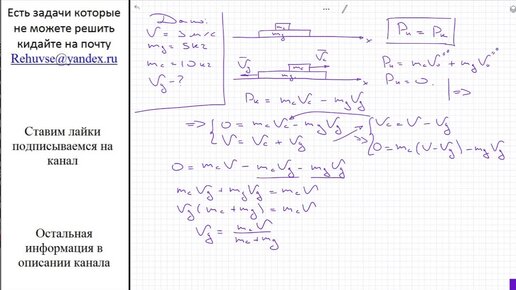 Есть задачи которые
не можете решить
кидайте на почту
Rehuvse@yandex.ru
Ставим лайки
подписываемся на
канал
Остальная
информация в
описании канала
Дано:
V = 3 м/с
m_g = 5 кг
m_c = 10 кг
V_g - ?
m_c
m_g
x
V_g
m_c
V_c
m_g
x
P_н = P_к
P_н = m_c V_0 + m_g V_0
P_н = 0.
=>
P_к = m_c V_c - m_g V_g
=> { 0 = m_c V_c - m_g V_g
V = V_c + V_g
V_c = V - V_g
=> 0 = m_c (V - V_g) - m_g V_g
0 = m_c V - m_c V_g - m_g V_g
m_c V_g + m_g V_g = m_c V
V_g (m_c + m_g) = m_c V
V_g = m_c V / m_c + m_g